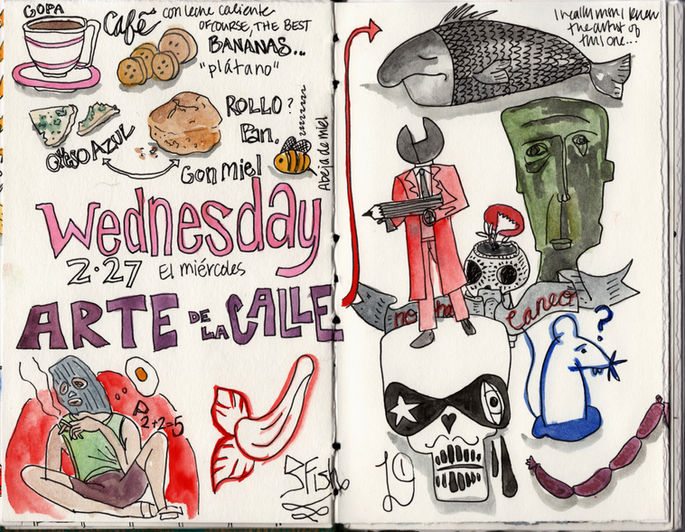 COPA
Café con leche caliente
OFCOURSE, THE BEST
BANANAS...
"plátano"
QUESO AZUL
ROLLO?
Pan.
Con Miel
Abeja de miel
Wednesday
2·27 El miércoles
ARTE DE LA CALLE
2+2=5
I really wish I knew
the artist of
this one...
?